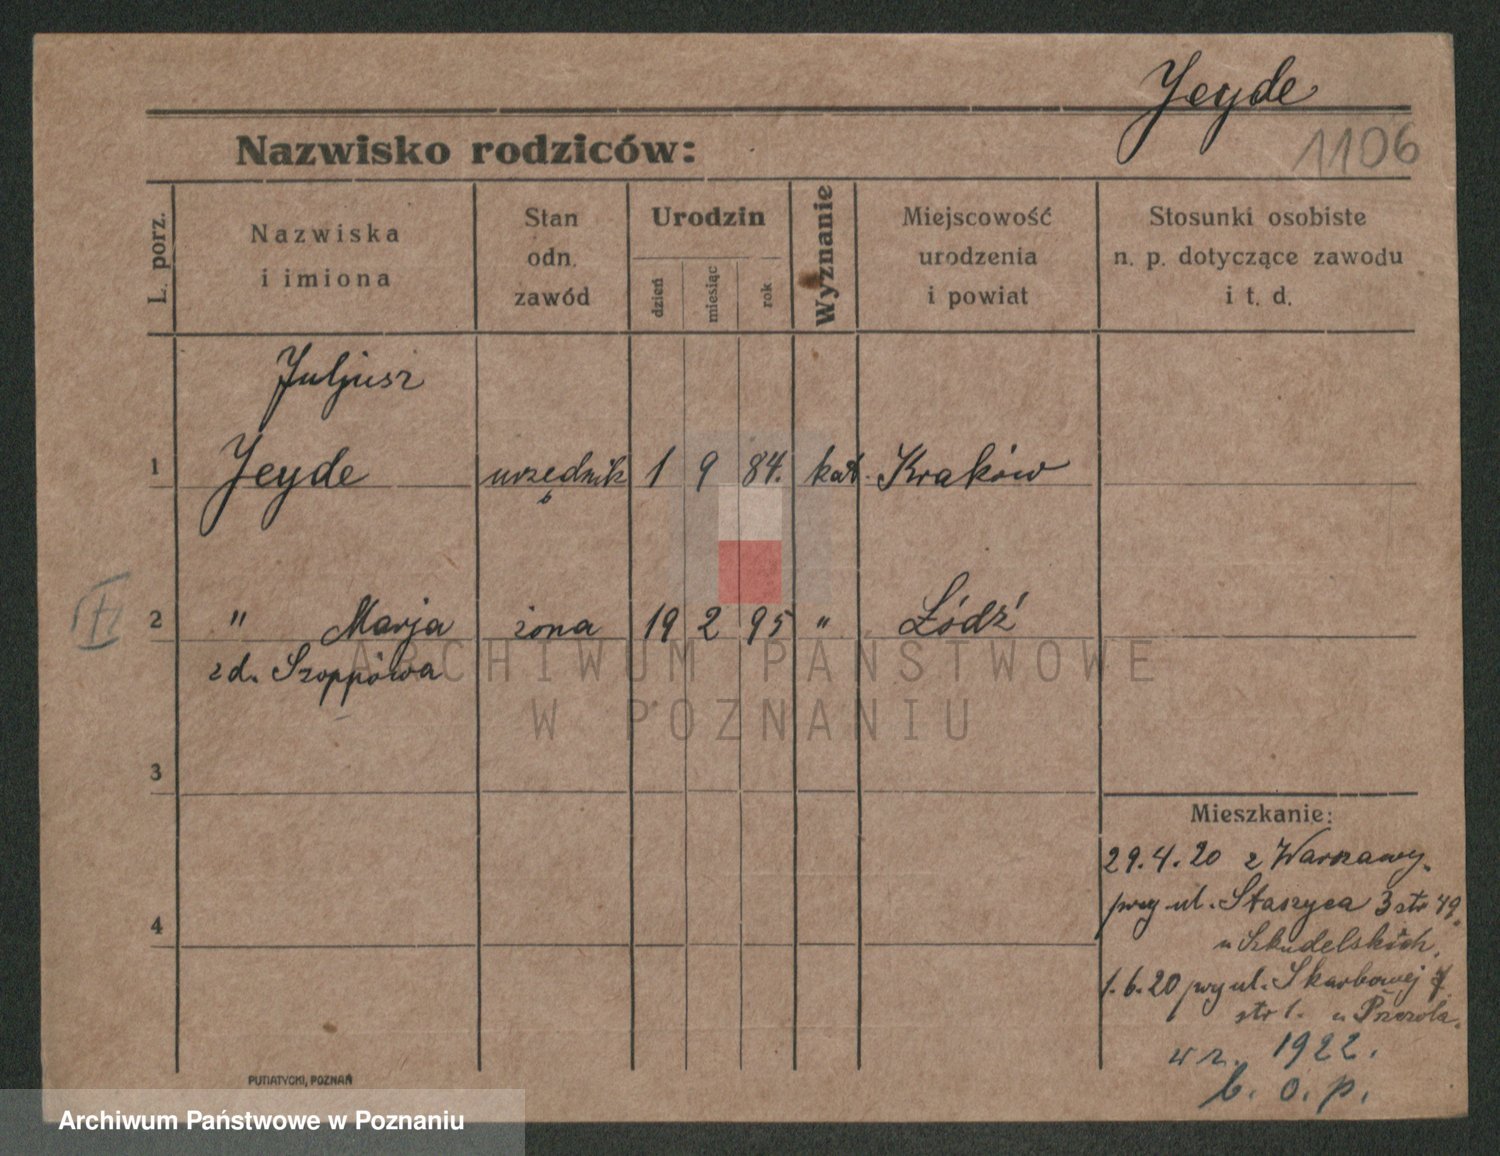 Jeyde
1106
Nazwisko rodziców:
L. porz.
Nazwiska
i imiona
Stan
odn.
zawód
Urodzin
dzień
miesiąc
rok
Wyznanie
Miejscowość
urodzenia
i powiat
Stosunki osobiste
n. p. dotyczące zawodu
i t. d.
Juljusz
1 Jeyde urzędnik 1 9 84. kat. Kraków
2 " Marja żona 19 2 95 " Łódź
zd. Szoppówa
ARCHIWUM PAŃSTWOWE
W POZNANIU
3
Mieszkanie:
29.4.20 z Warszawy.
przy ul. Staszyca 3 str 49.
4
u Szkudelskich.
1.6.20 przy ul. Skarbowej
str 1. u Pszczoła.
w r. 1922.
b. o. p.
PUTIATYCKI, POZNAŃ
Archiwum Państwowe w Poznaniu